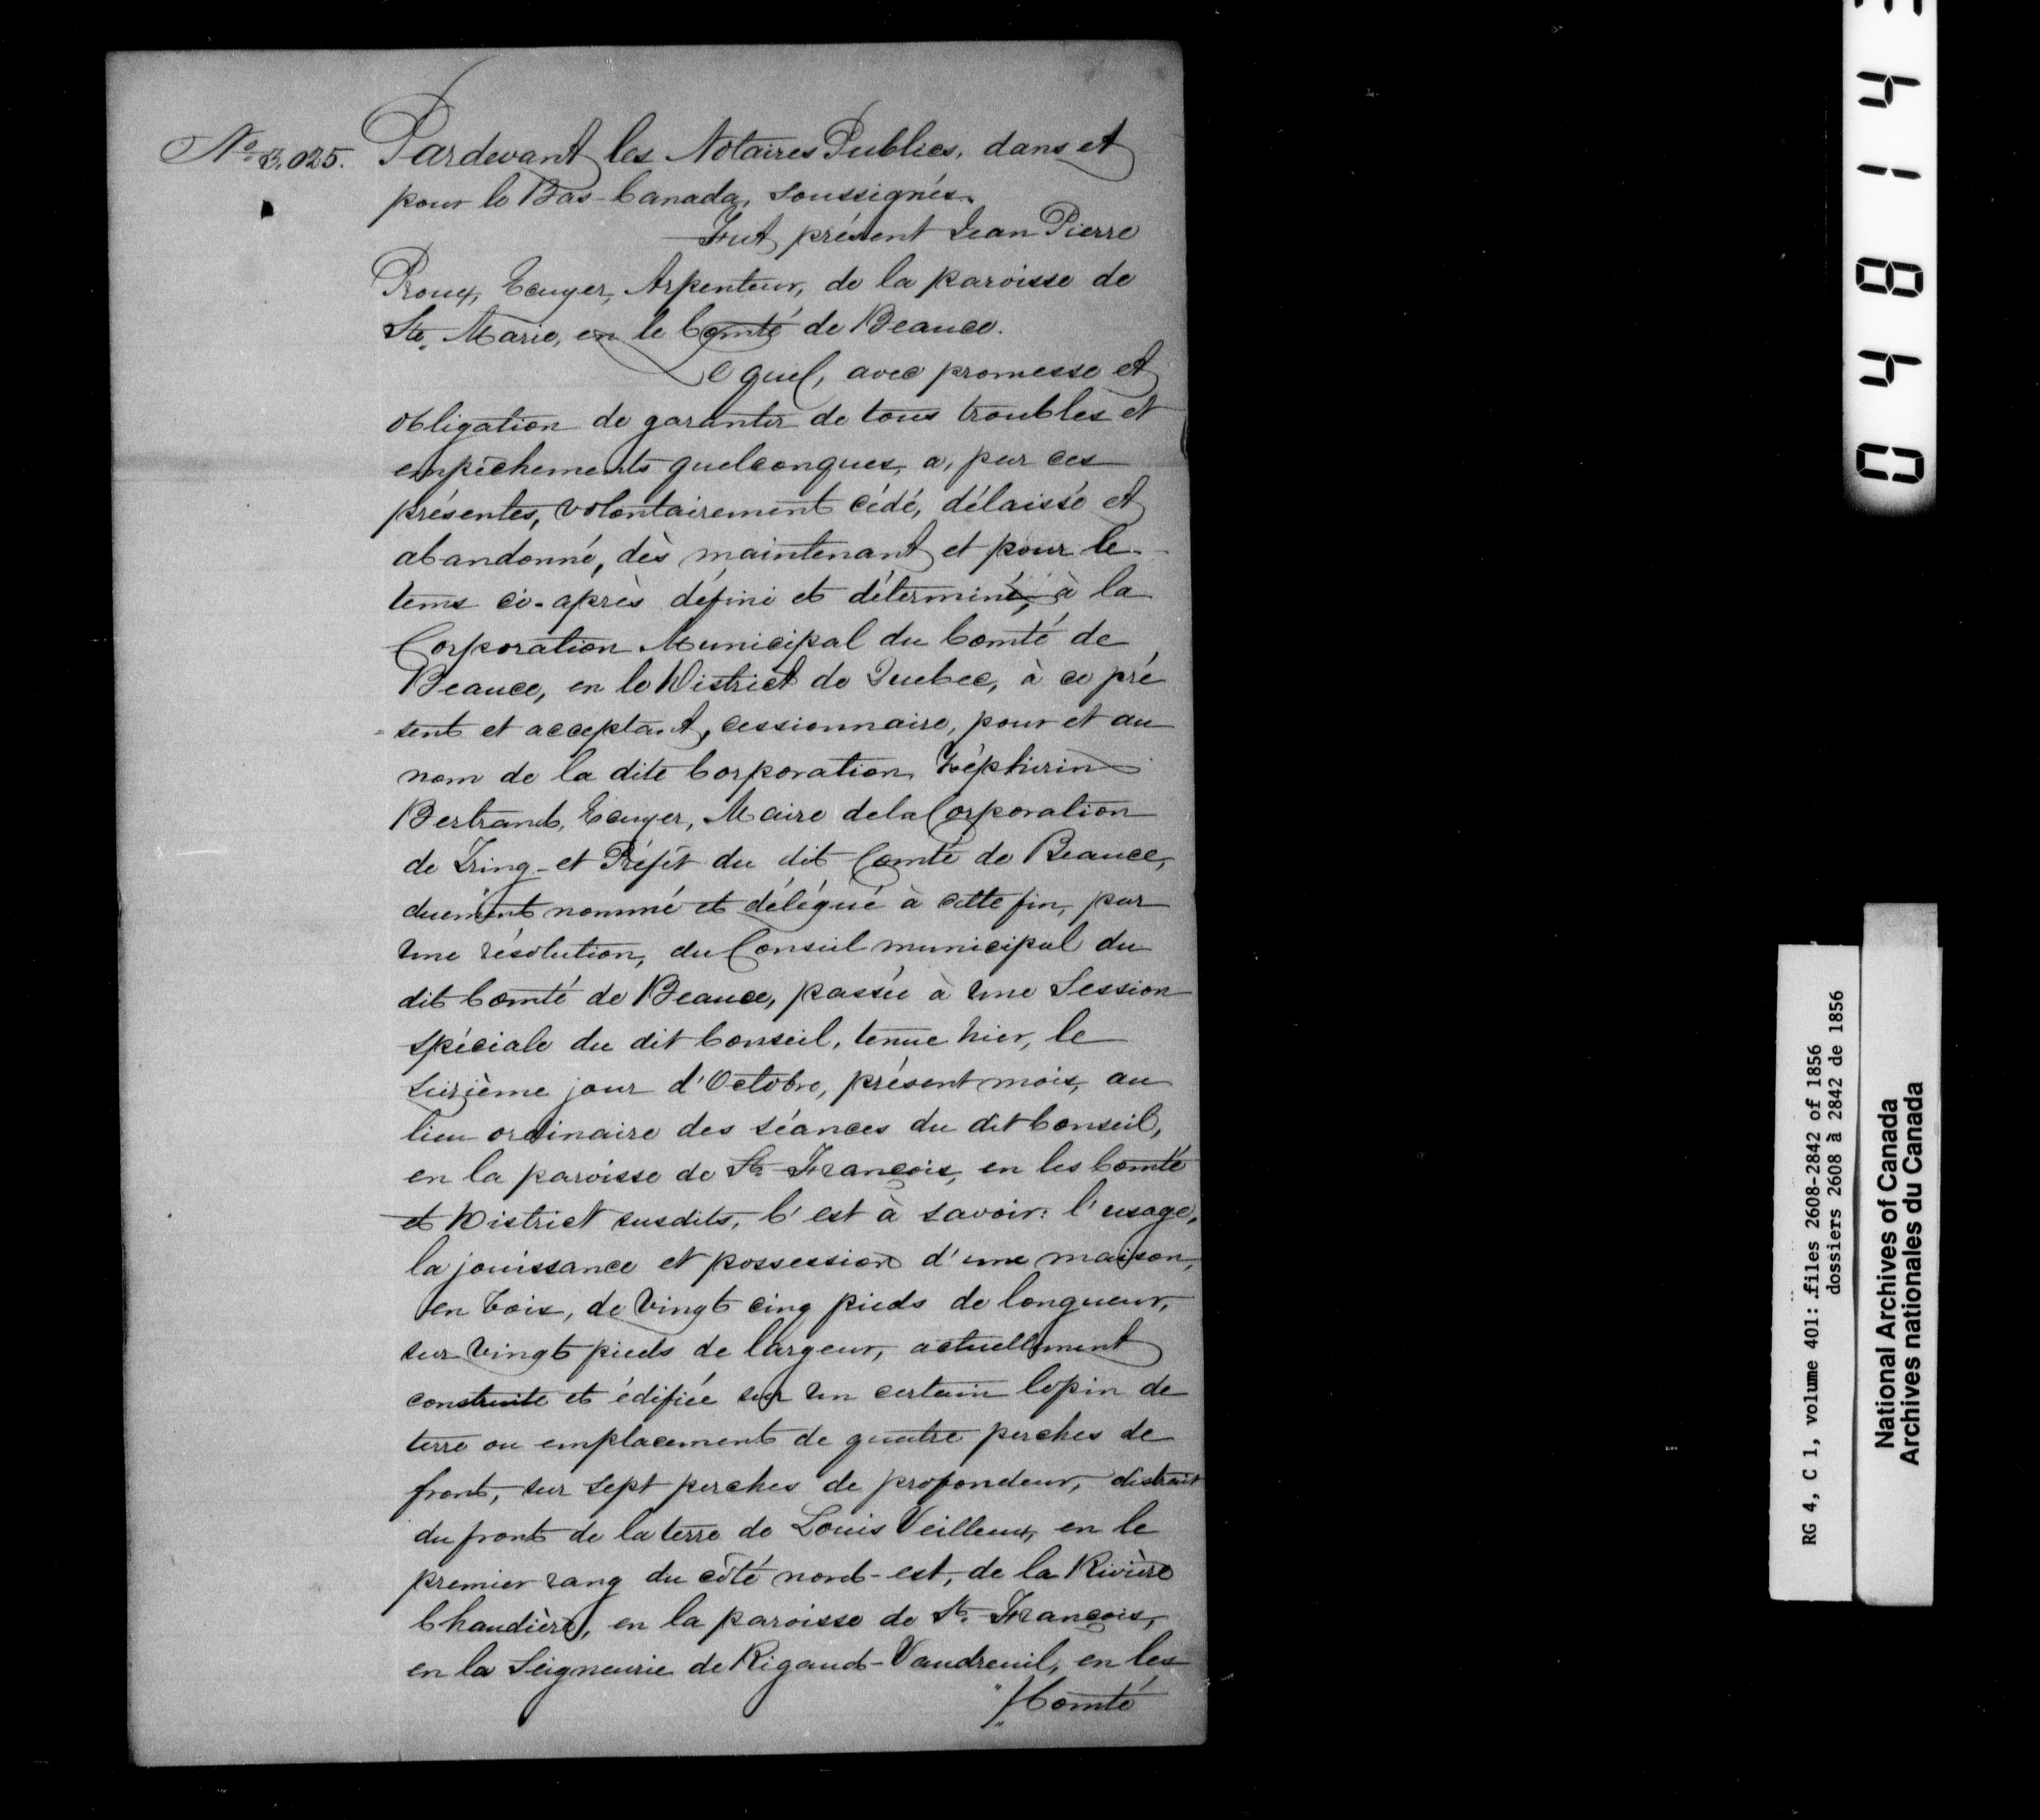 No. 3,025.
Pardevant les Notaires Publics, dans et
pour le Bas-Canada, soussignés.
Fut présent Jean Pierre
Proux, Ecuyer, Arpenteur, de la paroisse de
Ste. Marie, en le Comté de Beauce.
Lequel, avec promesse et
obligation de garantir de tous troubles et
empêchements quelconques, a, par ces
présentes, volontairement cédé, délaissé et
abandonné, dès maintenant et pour le
tems ci-après défini et déterminé, à la
Corporation Municipal du Comté de
Beauce, en le District de Quebec, à ce pré
=sent et acceptant, cessionnaire, pour et au
nom de la dite Corporation, Zéphirin
Bertrand, Ecuyer, Maire de la Corporation
de Tring - et Préfèt du dit Comté de Beauce,
duement nommé et délégué à cette fin, par
une résolution, du Conseil municipal du
dit Comté de Beauce, passée à une Session
spéciale du dit Conseil, tenue hier, le
seizième jour d'Octobre, présent mois, au
lieu ordinaire des séances du dit Conseil,
en la paroisse de St. François, en les Comté
et District susdits, C'est à savoir: l'usage,
la jouissance et possession d'une maison,
en bois, de vingt cinq pieds de longueur,
sur vingt pieds de largeur, actuellement
construite et édifiée sur un certain lopin de
terre ou emplacement de quatre perches de
front, sur sept perches de profondeur, distrait
du front de la terre de Louis Veilleux, en le
premier rang du côté nord-est, de la Rivière
Chaudière, en la paroisse de St. François,
en la Seigneurie de Rigaud-Vaudreuil, en les
"/Comté
04814
RG 4, C 1, volume 401: files 2608-2842 of 1856
dossiers 2608 à 2842 de 1856
National Archives of Canada
Archives nationales du Canada